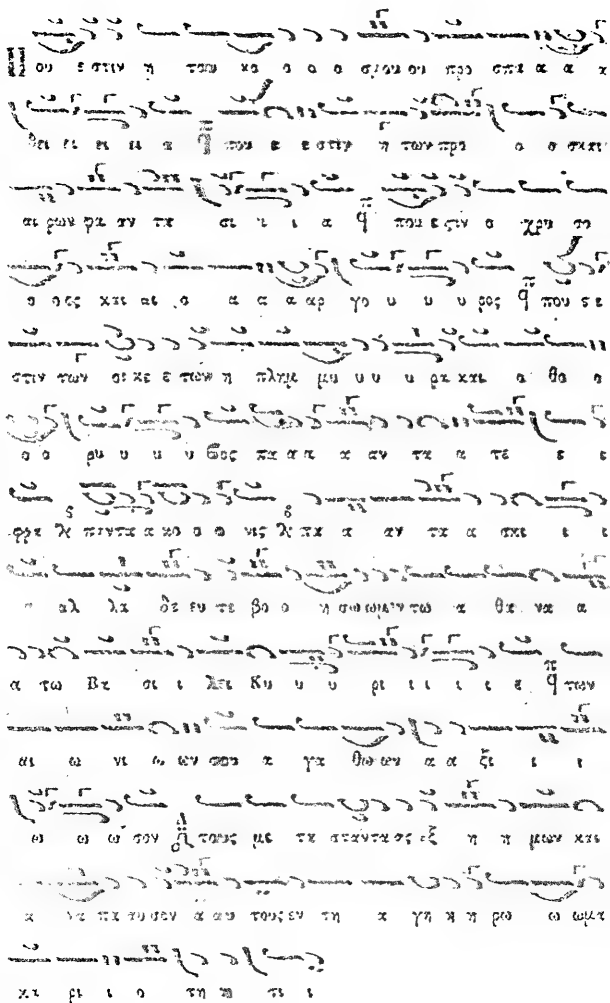 ου ε στιν η του κο ο ο ο σμου ου προ σπα α α α
θει ει ει ει α που ε ε στιν η των προ ο ο σκαι
αι ρων φα αν τα σι ι ι α που ε στιν ο χρυ σο
ο σος και αι ο α α α αρ γυ υ υ υ ρος που ου ε ε
στιν των οι κε ε των η πλημ μυ υ υ υ ρα και ο θο ο
ο ο ρυ υ υ υ βος πα α α α αν τα α τε ε ε
φρα πα α αν τα α σκι ι ι
α αλ λα δε ευ τε βο ο η σω ω μεν τω α θα να α
α τω Βα σι ι λει Κυ υ υ ρι ι ι ι ι ε των
αι ω νι ω ων σου α γα θω ων α α ξι ι ι
ω ω ω σον τους με τα α τάντας εξ η η μων και
α να πα αυ σον α αυ τους εν τη α γη η ρω ω ω μα
κα ρι ι ο τη τι ι